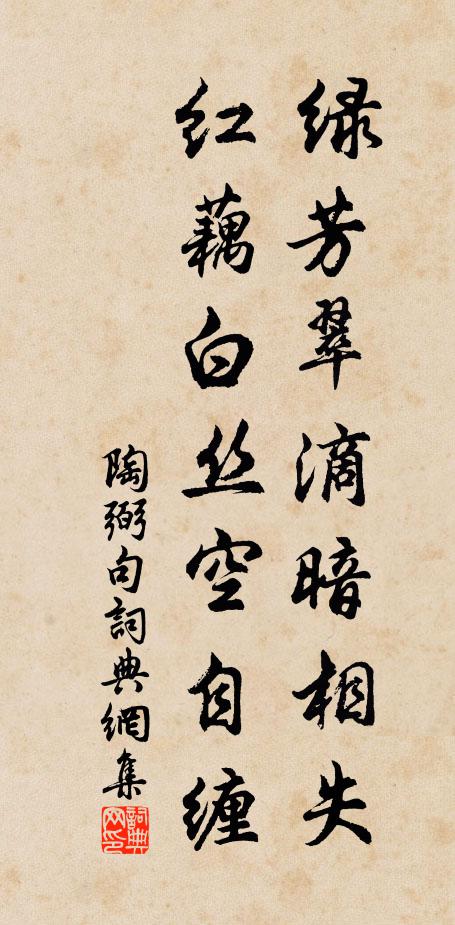 绿芳翠滴暗相失
红藕白丝空自缠
陶弼句詞典網集
詞典网印